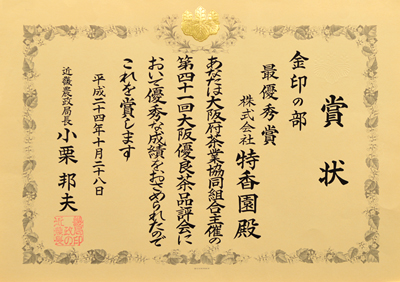 賞状
金印の部
最優秀賞
株式会社 特香園殿
あなたは大阪府茶業協同組合主催の
第四十一回大阪優良茶品評会に
おいて優秀な成績をおさめられたので
これを賞します
平成二十四年十月二十八日
近畿農政局長 小栗邦夫